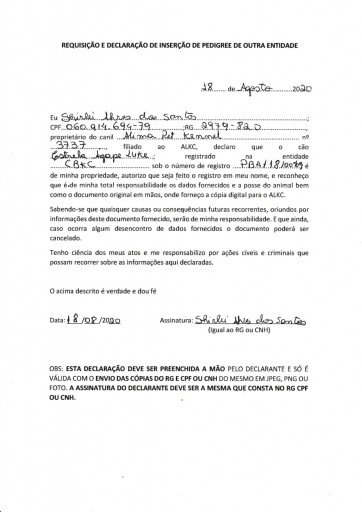 REQUISIÇÃO E DECLARAÇÃO DE INSERÇÃO DE PEDIGREE DE OUTRA ENTIDADE
18 de Agosto 2020
Eu Shirlei Alves dos Santos;
CPF 060.914.694-79 RG 2979-820;
proprietário do canil Mima Pet Kennel nº
3737, filiado ao ALKC, declaro que o cão
Estrela Agape Luke; registrado na entidade
CBKC sob o número de registro PBA/18/00 é
de minha propriedade, autorizo que seja feito o registro em meu nome, e reconheço
que é de minha total responsabilidade os dados fornecidos e a posse do animal bem
como o documento original em mãos, onde forneço a cópia digital para o ALKC.
Sabendo-se que quaisquer causas ou consequências futuras recorrentes, oriundos por
informações deste documento fornecido, serão de minha responsabilidade. E que ainda,
caso ocorra algum desencontro de dados fornecidos o documento poderá ser
cancelado.
Tenho ciência dos meus atos e me responsabilizo por ações cíveis e criminais que
possam recorrer sobre as informações aqui declaradas.
O acima descrito é verdade e dou fé
Data: 18/08/2020 Assinatura: Shirlei Alves dos Santos
(Igual ao RG ou CNH)
OBS: ESTA DECLARAÇÃO DEVE SER PREENCHIDA A MÃO PELO DECLARANTE E SÓ É
VÁLIDA COM O ENVIO DAS CÓPIAS DO RG E CPF OU CNH DO MESMO EM JPEG, PNG OU
FOTO. A ASSINATURA DO DECLARANTE DEVE SER A MESMA QUE CONSTA NO RG CPF
OU CNH.